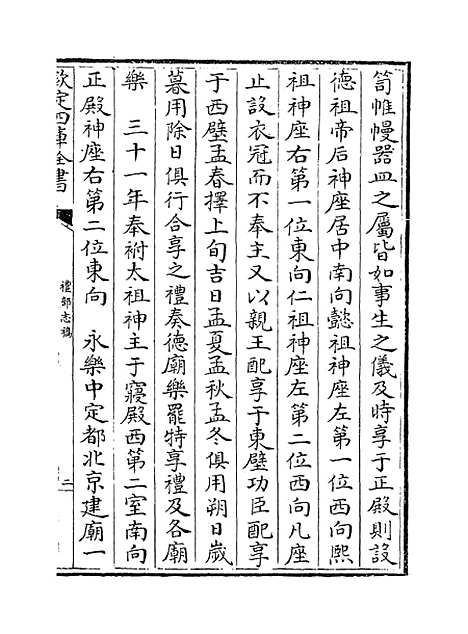 笥帷幔器皿之屬皆如事生之儀及時享于正殿則設
德祖帝后神座居中南向懿祖神座左第一位西向熙
祖神座右第一位東向仁祖神座左第二位西向凡座
止設衣冠而不奉主又以親王配享于東壁功臣配享
于西壁孟春擇上旬吉日孟夏孟秋孟冬俱用朔日歲
暮用除日俱行合享之禮奏德廟樂罷特享禮及各廟
樂　三十一年奉祔太祖神主于寢殿西第二室南向
正殿神座右第二位東向　永樂中定都北京建廟一
欽定四庫全書
禮部志稿
二